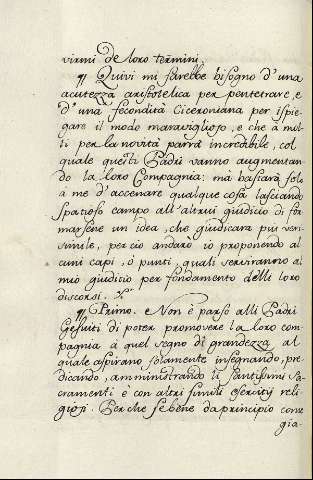 virmi de loro termini.
¶ Quivi mi sarebbe bisogno d'una
acutezza aristotelica per pentetrare, e
d'una fecondità Ciceroniana per ispie
gare il modo maraviglioso, e che à mol
ti per la novità parrà incredibile, col
quale questi Padri vanno augmentan
do la loro Compagnia: mà bastarà solo
à me d'accenare qualque cosa lasciando
spatioso campo all'altrui giudicio di for
marsene un idea, che giudicara più veri
simile, per cio andarò io proponendo al
cuni capi, ò punti, quali serviranno al
mio giudicio per fondamento delli loro
discorsi.
¶ Primo. e Non è parso alli Padri
Gesuiti di poter promovere la loro com
pagnia à quel segno di grandezza al
quale aspirano solamente insegnando, pre
dicando, amministrando li santissimi sa
cramenti e con altri simili esercitij reli
giosi. Perche se bene da principio conve
gia-